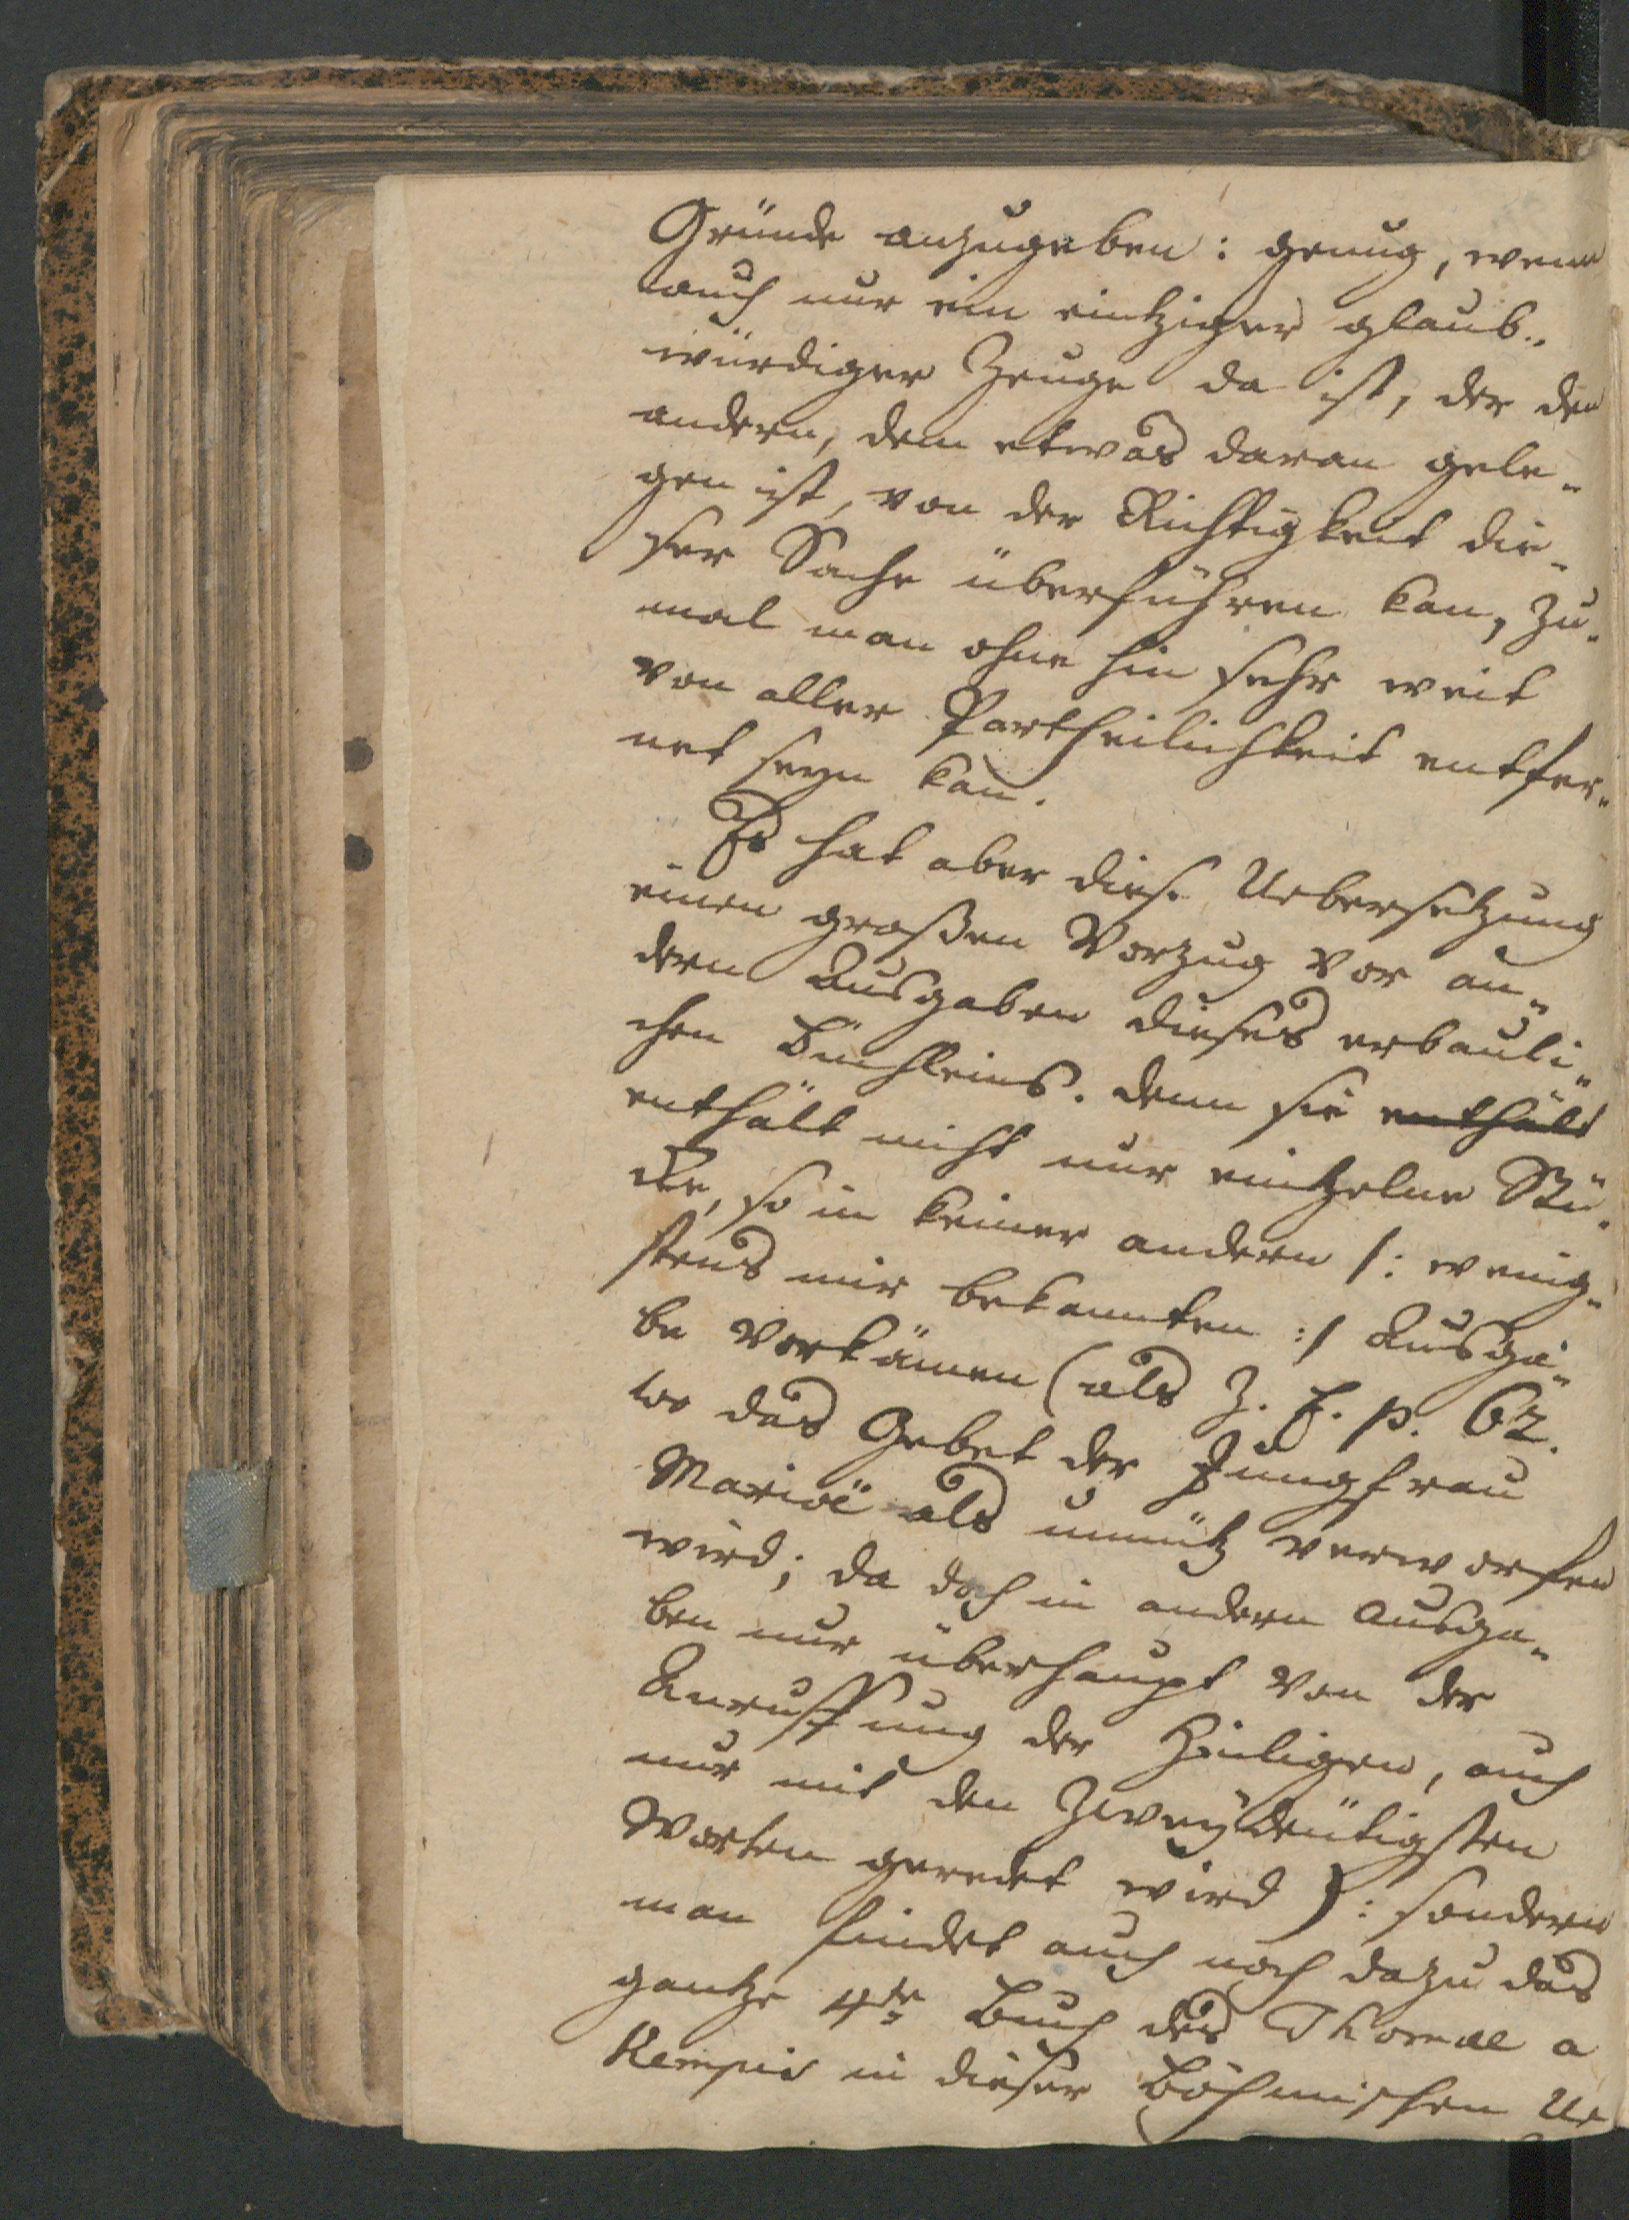 Gründe anzugeben: genug, wenn
auch nur ein eintziger glaub„
würdiger Zeuge da ist, der den
andern, dem etwas daran gele„
gen ist, von der Richtigkeit die„
ser Sache überführen kan, zu„
mal man ohne hin sehr weit
von aller Partheilichkeit entfer„
net seyn kan.
Es hat aber diese Uebersetzung
einen großen Vorzug vor an„
dern Ausgaben dieses erbauli„
chen Büchleins. denn sie enthält
enthält nicht nur eintzelne Stü„
cke, so in keiner andern /: wenig„
stens mir bekannten :/ Ausga„
be vorkämen (als z. E. p. 62.
wo das Gebet der Jungfrau
Mariä als unnütz verworfen
wird; da doch in andern Ausga„
ben nur überhaupt von der
Anruffung der Heiligen, auch
nur mit den zweydeutigsten
Worten geredet wird ): sondern
man findet auch noch dazu das
gantze 4te Buch des Thomae a
Kempis in dieser Böhmischen Ue